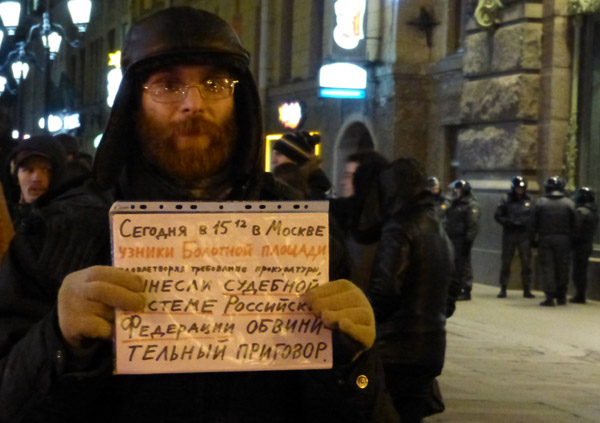 Сегодня в 15 12 в Москве
узники Болотной площади
удовлетворяя требование прокуратуры,
вынесли судебной
системе Российской
Федерации обвини
тельный приговор.